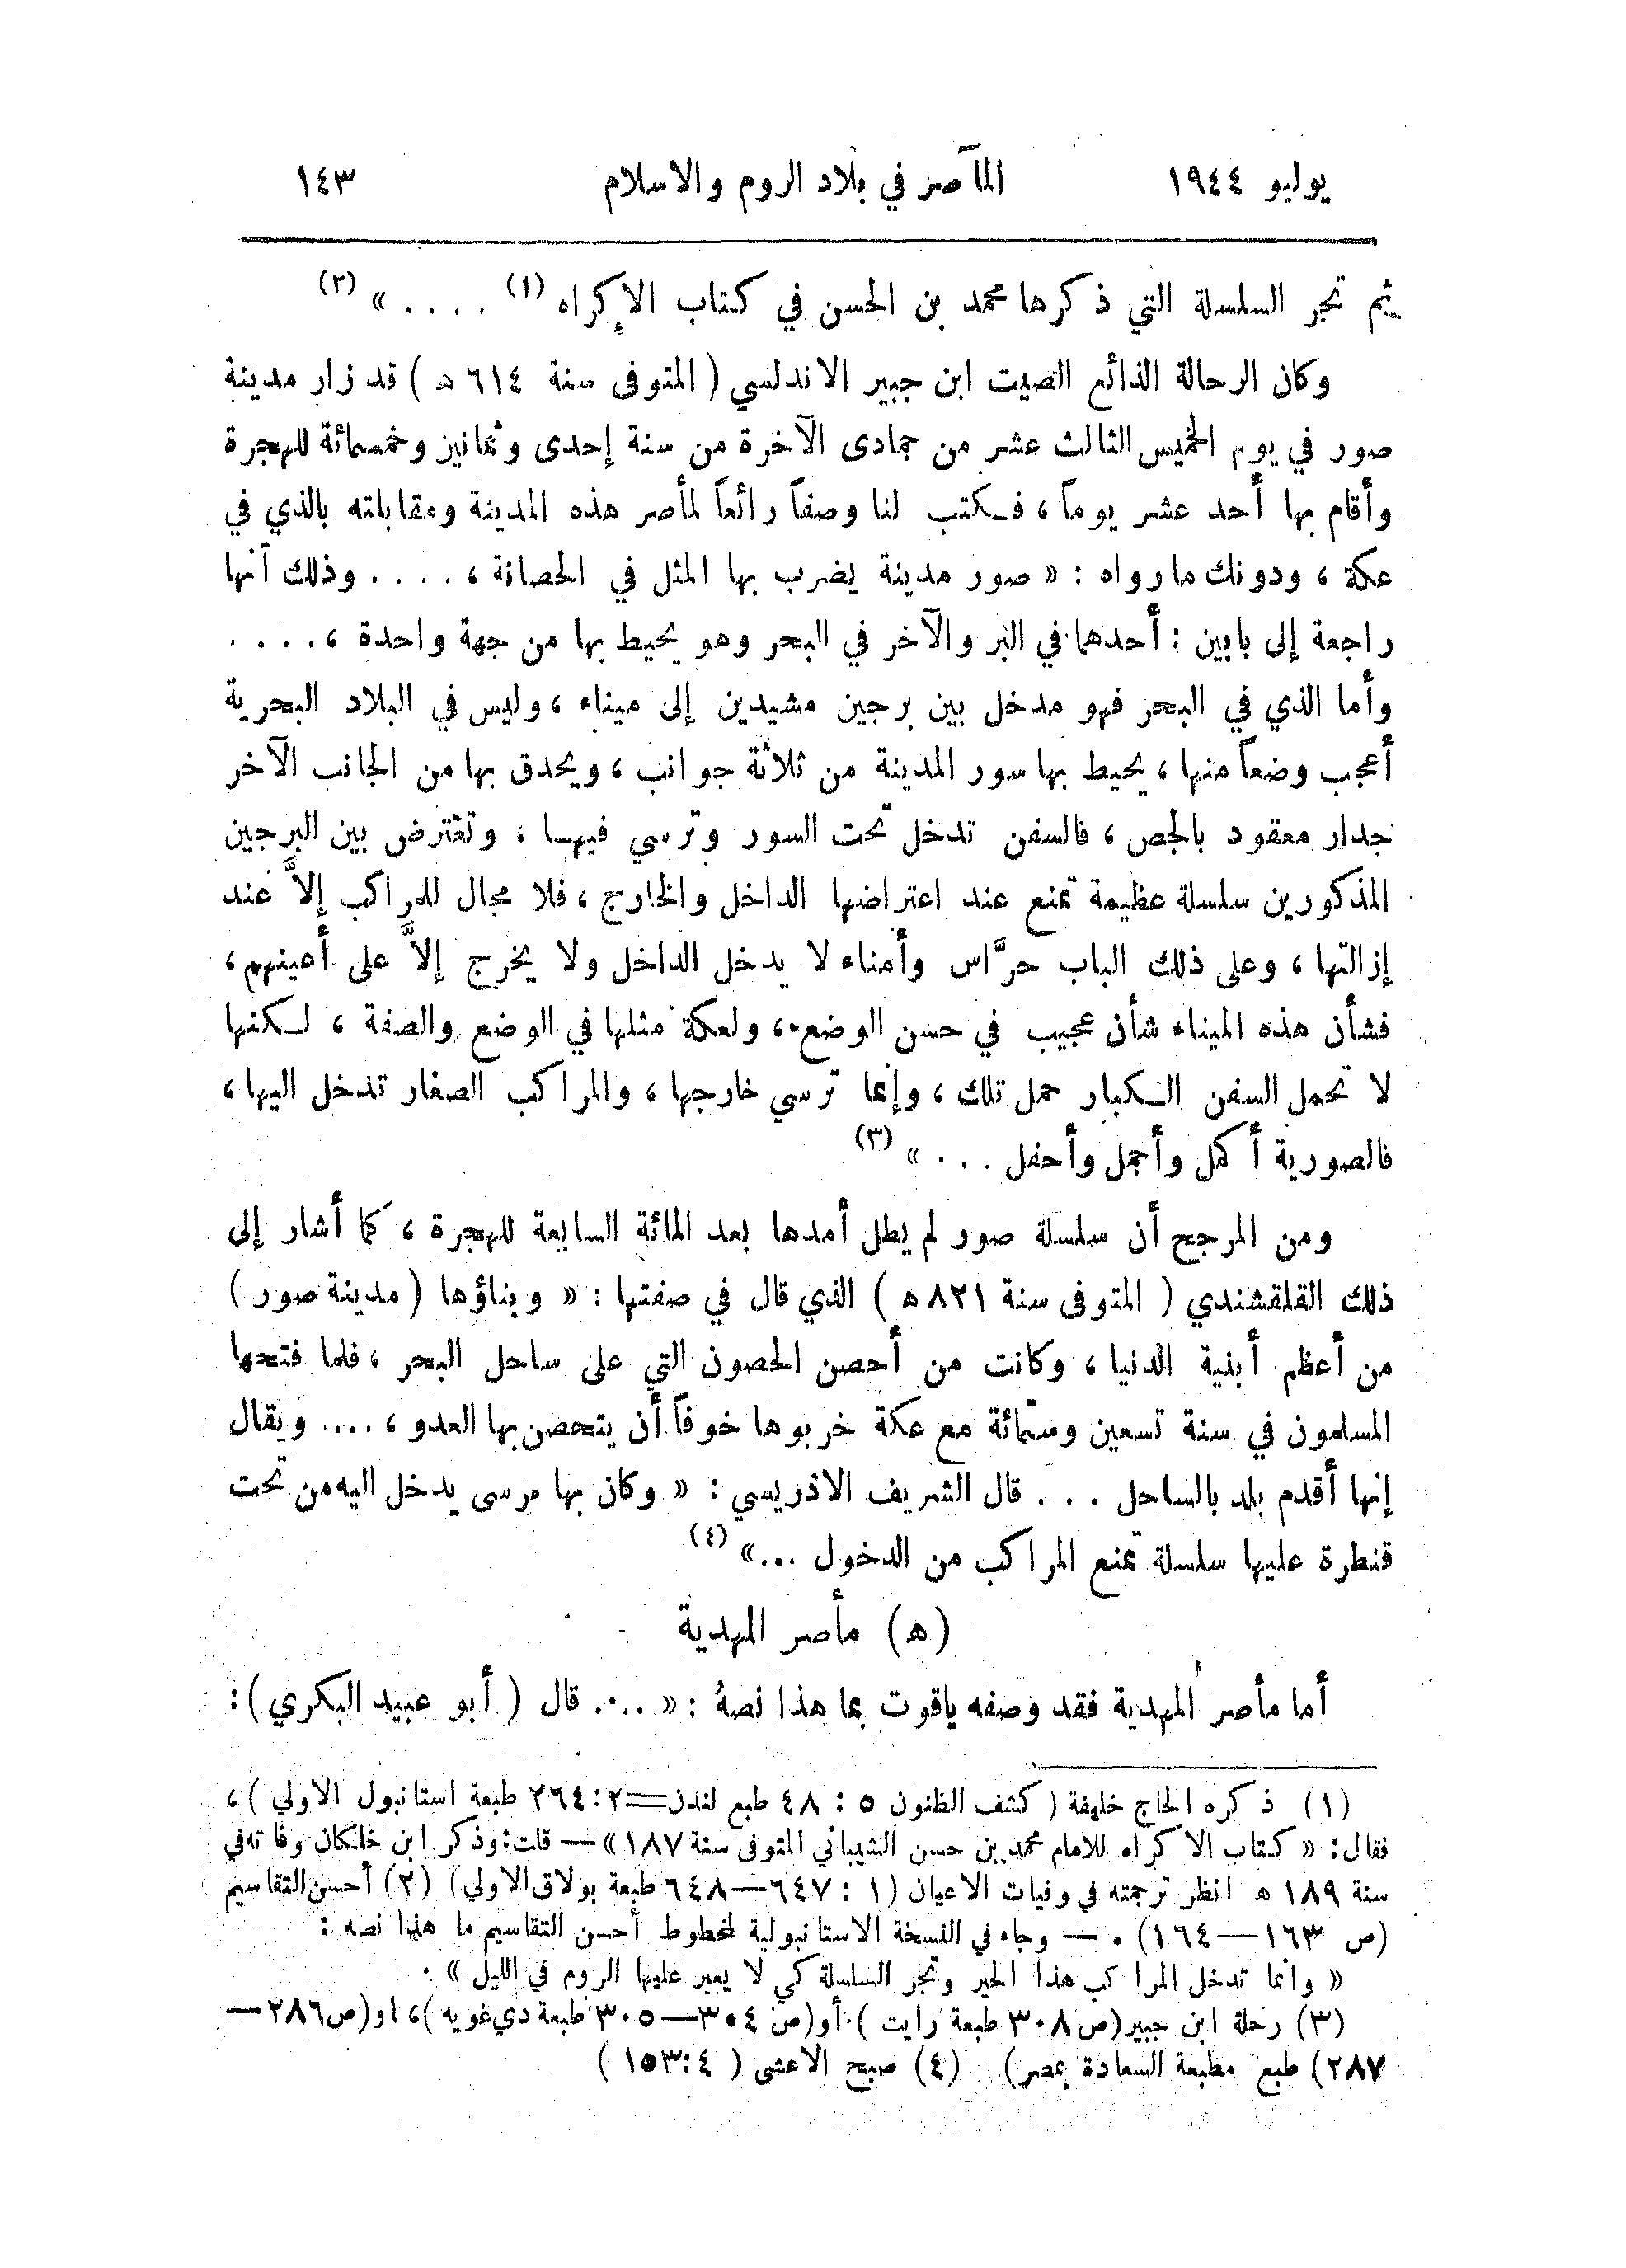 يوليو ١٩٤٤ المآصر في بلاد الروم والاسلام ١٤٣
ثم تجر السلسلة التي ذكرها محمد بن الحسن في كتاب الإكراه (١) . . . . » (٢)
وكان الرحالة الذائع الصيت ابن جبير الاندلسي ( المتوفى سنة ٦١٤ ه ) قد زار مدينة
صور في يوم الخميس الثالث عشر من جمادى الآخرة من سنة إحدى وثمانين وخمسمائة للهجرة
وأقام بها أحد عشر يوماً ، فكتب لنا وصفاً رائعاً لمأصر هذه المدينة ومقابلته بالذي في
عكة ، ودونك مارواه : « صور مدينة يضرب بها المثل في الحصانة ، . . . . وذلك أنها
راجعة إلى بابين : أحدهما في البر والآخر في البحر وهو يحيط بها من جهة واحدة ، . . . .
وأما الذي في البحر فهو مدخل بين برجين مشيدين إلى ميناء ، وليس في البلاد البحرية
أعجب وضعاً منها ، يحيط بها سور المدينة من ثلاثة جوانب ، ويحدق بها من الجانب الآخر
جدار معقود بالجص ، فالسفن تدخل تحت السور وترسي فيها ، وتعترض بين البرجين
المذكورين سلسلة عظيمة تمنع عند اعتراضها الداخل والخارج ، فلا مجال للمراكب إلاَّ عند
إزالتها ، وعلى ذلك الباب حرَّاس وأمناء لا يدخل الداخل ولا يخرج إلاَّ على أعينهم ،
فشأن هذه الميناء شأن عجيب في حسن الوضع ، ولعكة مثلها في الوضع والصفة ، لكنها
لا تحمل السفن الكبار حمل تلك ، وإنما ترسي خارجها ، والمراكب الصغار تدخل اليها ،
فالصورية أكمل وأجمل وأحفل . . . » (٣)
ومن المرجح أن سلسلة صور لم يطل أمدها بعد المائة السابعة للهجرة ، كما أشار إلى
ذلك القلقشندي ( المتوفى سنة ٨٢١ ه ) الذي قال في صفتها : « وبناؤها ( مدينة صور )
من أعظم أبنية الدنيا ، وكانت من أحصن الحصون التي على ساحل البحر ، فلما فتحها
المسلمون في سنة تسعين وستمائة مع عكة خربوها خوفاً أن يتحصن بها العدو ، .... ويقال
إنها أقدم بلد بالساحل . . . قال الشريف الادريسي : « وكان بها مرسى يدخل اليه من تحت
قنطرة عليها سلسلة تمنع المراكب من الدخول ...» (٤)
(ه) مأصر المهدية
أما مأصر المهدية فقد وصفه ياقوت بما هذا نصهُ : « ... قال ( أبو عبيد البكري ) :
(١) ذكره الحاج خليفة ( كشف الظنون ٥ : ٤٨ طبع لندن = ٢ : ٢٦٤ طبعة استانبول الاولي ) ،
فقال : « كتاب الاكراه للامام محمد بن حسن الشيباني المتوفى سنة ١٨٧ » — قلت : وذكر ابن خلكان وفاته في
سنة ١٨٩ ه انظر ترجمته في وفيات الاعيان (١ : ٦٤٧—٦٤٨ طبعة بولاق الاولي) (٢) أحسن التقاسيم
(ص ١٦٣—١٦٤) . — وجاء في النسخة الاستانبولية لمخطوط أحسن التقاسيم ما هذا نصه :
« وانما تدخل المراكب هذا الحير وتجر السلسلة كي لا يعبر عليها الروم في الليل » .
(٣) رحلة ابن جبير (ص ٣٠٨ طبعة رايت ) . أو (ص ٣٠٤—٣٠٥ طبعة دي غويه ) ، او (ص ٢٨٦—
٢٨٧ طبع مطبعة السعادة بمصر) (٤) صبح الاعشى ( ٤ : ١٥٣ )